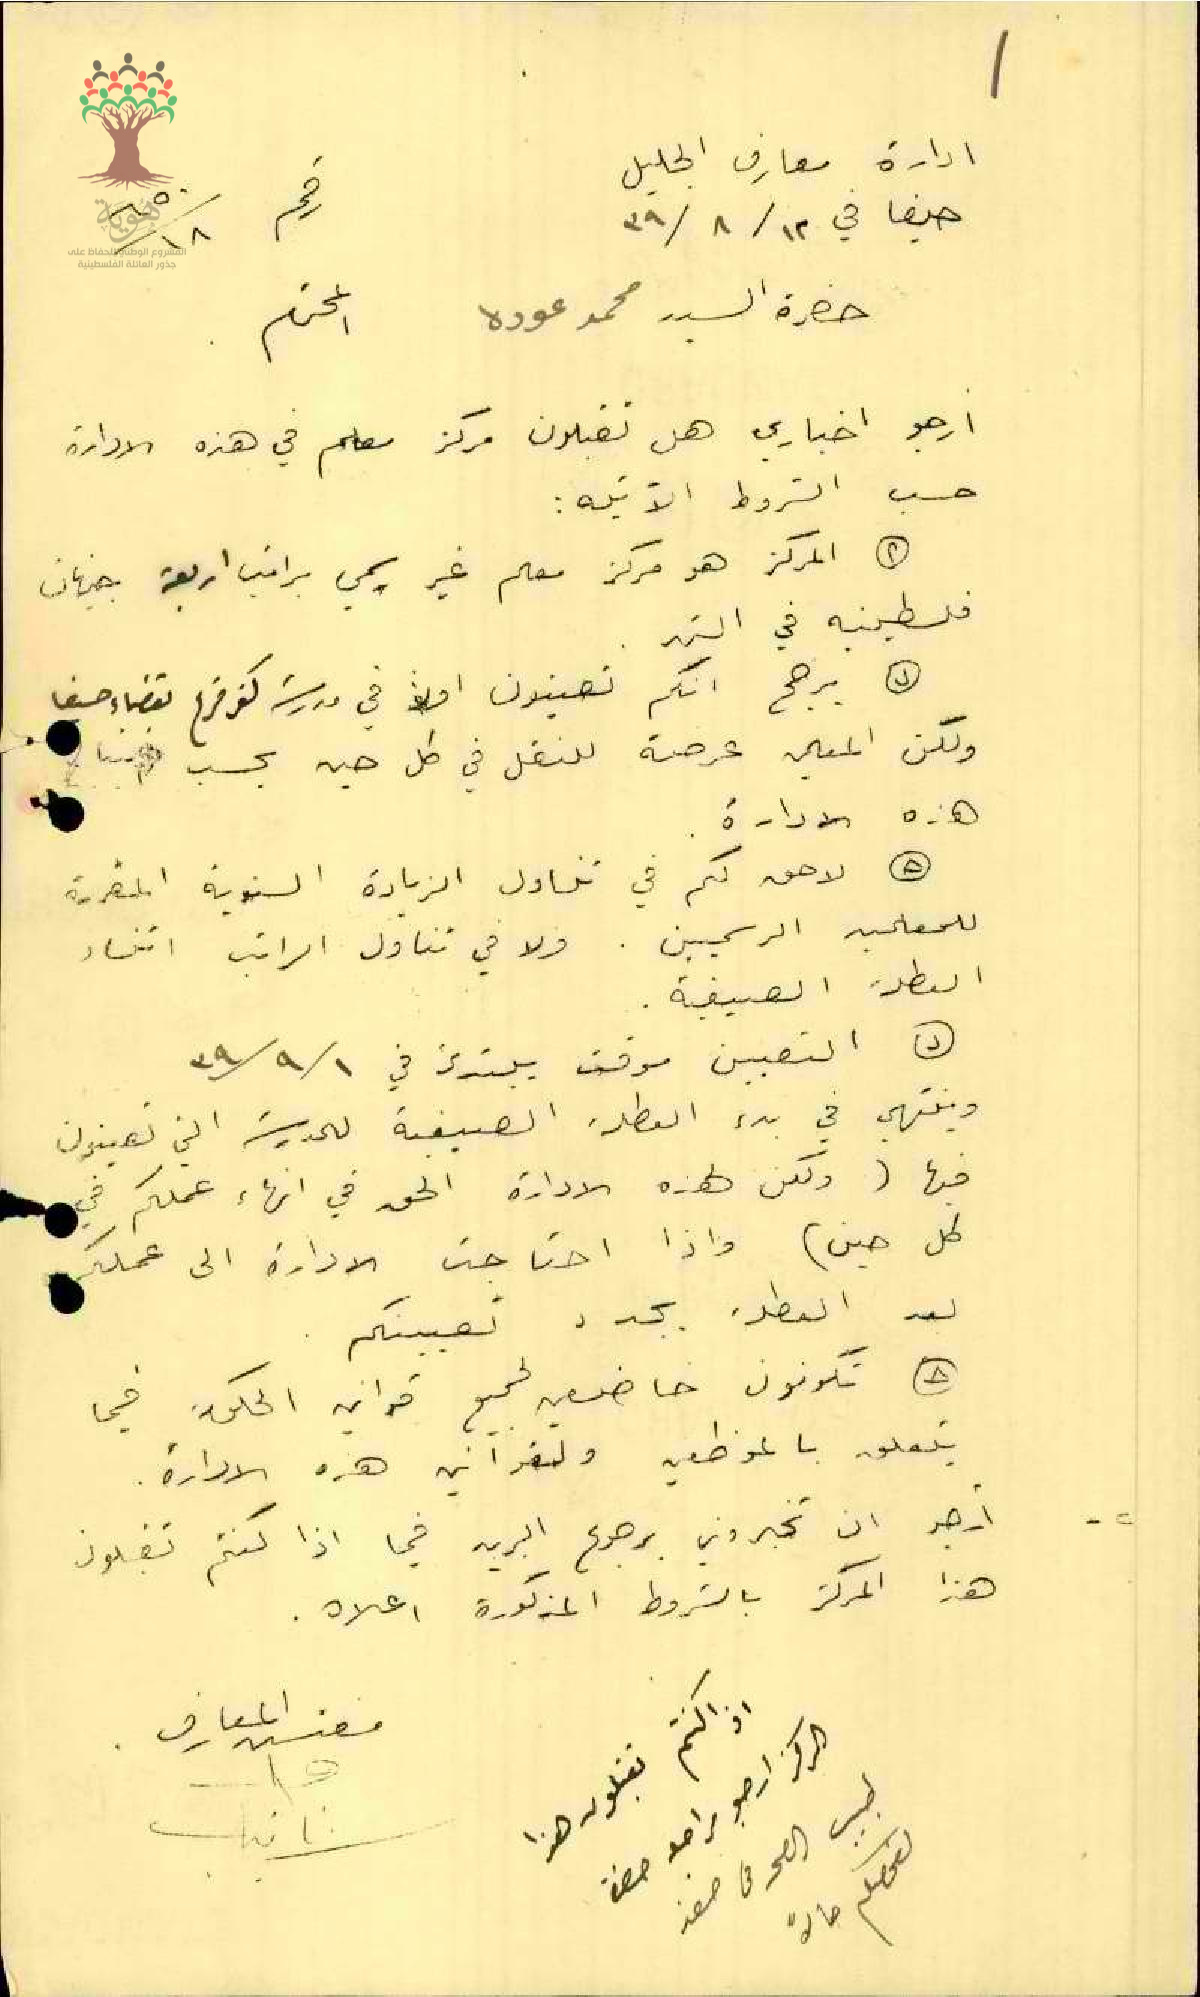 ١
ادارة معارف الجليل
حيفا في ١٢/ ٨ /٣٩
رقم ١٨/
هوية
المشروع الوطني للحفاظ على
جذور العائلة الفلسطينية
حضرة السيد محمد عوده المحترم .
أرجو اخباري هل تقبلون مركز معلم في هذه الادارة
حسب الشروط الآتيه :
المركز هو مركز معلم غير رسمي براتب اربعة جنيهات
فلسطينيه في الشهر .
ب يرجح انكم تعينون اولا في مدرسة بقضاء حيفا
ولكن المعلمين عرضة للنقل في كل حين بحسب
هذه الادارة .
ج لا حق لكم في تناول الزيادة السنوية المقررة
للمعلمين الرسميين . ولا في تناول الراتب اثناء
العطلة الصيفية .
د التعيين موقت يبتدئ في ٣٩/٩/١
وينتهي في بدء العطلة الصيفية للمدرسة التي تعينون
فيها ( ولكن لهذه الادارة الحق في انهاء عملكم في
كل حين) واذا احتاجت الادارة الى عملكم
بعد العطلة يجدد تعيينكم .
تكونون خاضعين لجميع قوانين الحكومة فيما
يتعلق بالموظفين ولقوانين هذه الادارة .
٢- أرجو ان تخبروني برجوع البريد فيما اذا كنتم تقبلون
هذا المركز بالشروط المذكورة اعلاه .
مفتش المعارف .
اذا كنتم تقبلون هذا
المركز ارجو مراجعة حضرة
طبيب الصحة في صفد
لفحصكم حالا